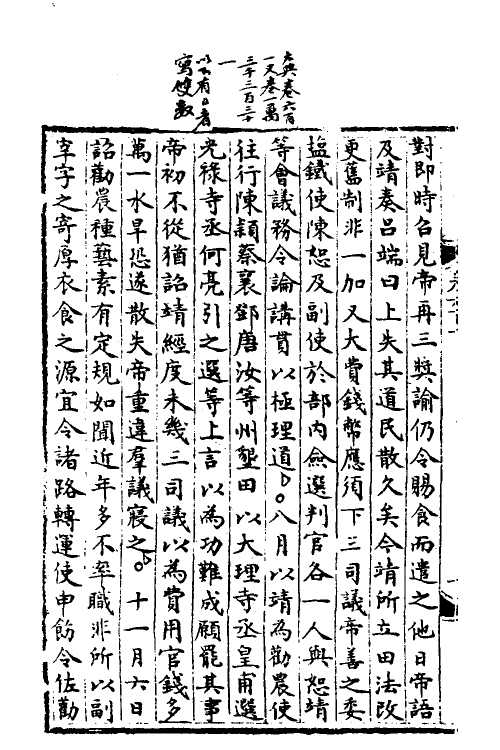 大典卷六百
一又卷一萬
三千三百三十
一
以下有口者
寫雙數
對即時召見帝再三奬諭仍令賜食而遣之他日帝語
及靖奏呂端曰上失其道民散久矣今靖所立田法改
更舊制非一加又大費錢幣應須下三司議帝善之委
鹽鐵使陳恕及副使於部内僉選判官各一人與恕靖
等會議務令論講貫以極理道○八月以靖為勸農使
往行陳潁蔡襄鄧唐汝等州墾田以大理寺丞皇甫選
光祿寺丞何亮引之選等上言以為功難成願罷其事
帝初不從猶詔靖經度未幾三司議以為費用官錢多
萬一水旱恐遂散失帝重違羣議寢之○十一月六日
詔勸農種藝素有定規如聞近年多不率職非所以副
宰字之寄厚衣食之源宜令諸路轉運使申飭令佐勸